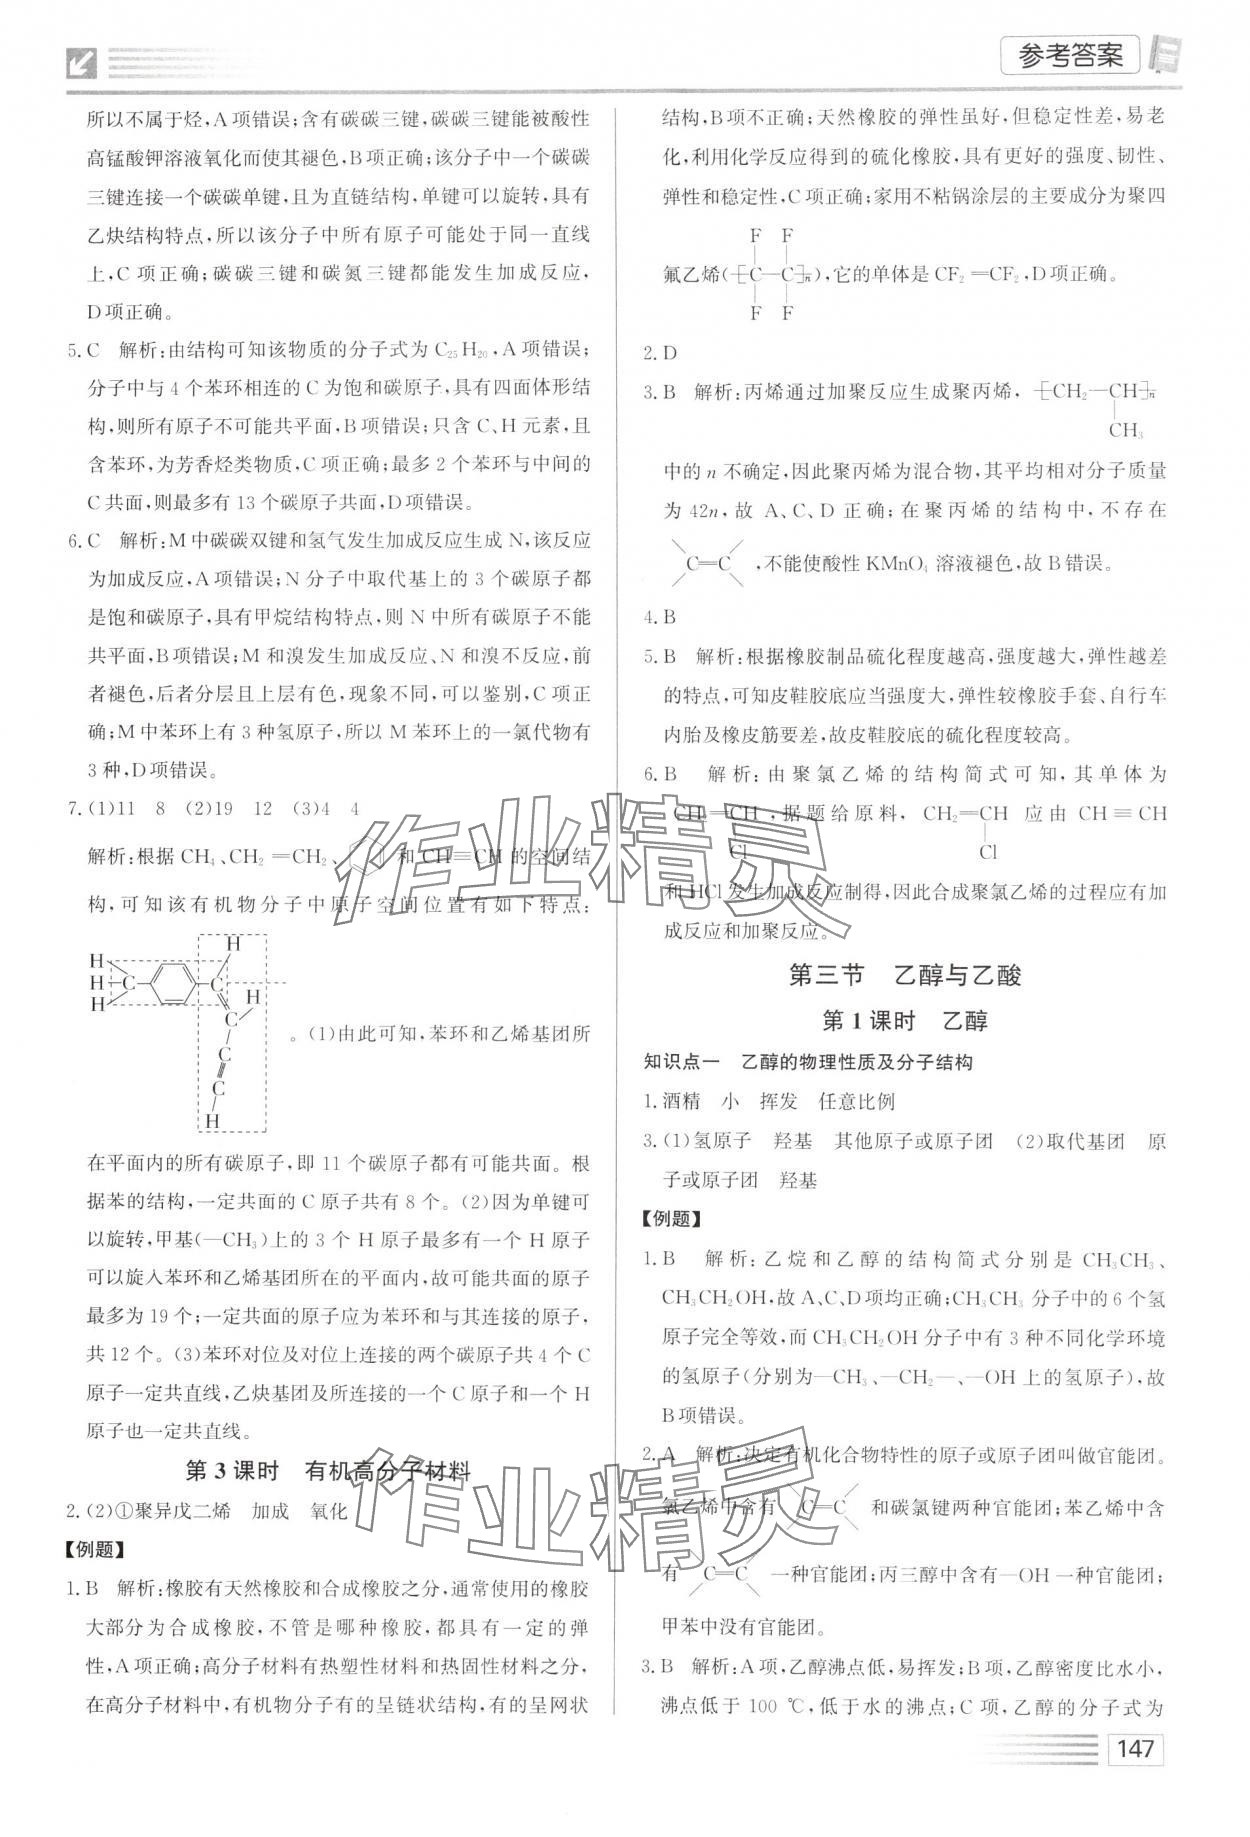 参考答案
所以不属于烃,A项错误;含有碳碳三键,碳碳三键能被酸性
高锰酸钾溶液氧化而使其褪色,B项正确;该分子中一个碳碳
三键连接一个碳碳单键,且为直链结构,单键可以旋转,具有
乙炔结构特点,所以该分子中所有原子可能处于同一直线
上,C项正确;碳碳三键和碳氮三键都能发生加成反应,
D项正确。
5.C 解析:由结构可知该物质的分子式为C₂₅H₂₀,A项错误;
分子中与4个苯环相连的C为饱和碳原子,具有四面体形结
构,则所有原子不可能共平面,B项错误;只含C、H元素,且
含苯环,为芳香烃类物质,C项正确;最多2个苯环与中间的
C共面,则最多有13个碳原子共面,D项错误。
6.C 解析:M中碳碳双键和氢气发生加成反应生成N,该反应
为加成反应,A项错误;N分子中取代基上的3个碳原子都
是饱和碳原子,具有甲烷结构特点,则N中所有碳原子不能
共平面,B项错误;M和溴发生加成反应、N和溴不反应,前
者褪色,后者分层且上层有色,现象不同,可以鉴别,C项正
确;M中苯环上有3种氢原子,所以M苯环上的一氯代物有
3种,D项错误。
7.(1)11 8 (2)19 12 (3)4 4
解析:根据CH₄、CH₂=CH₂、 和CH≡CH的空间结
构,可知该有机物分子中原子空间位置有如下特点:
H
H
H—C
H
C
H
C
C
C
H
。(1)由此可知,苯环和乙烯基团所
在平面内的所有碳原子,即11个碳原子都有可能共面。根
据苯的结构,一定共面的C原子共有8个。(2)因为单键可
以旋转,甲基(—CH₃)上的3个H原子最多有一个H原子
可以旋入苯环和乙烯基团所在的平面内,故可能共面的原子
最多为19个;一定共面的原子应为苯环和与其连接的原子,
共12个。(3)苯环对位及对位上连接的两个碳原子共4个C
原子一定共直线,乙炔基团及所连接的一个C原子和一个H
原子也一定共直线。
第3课时 有机高分子材料
2.(2)①聚异戊二烯 加成 氧化
【例题】
1.B 解析:橡胶有天然橡胶和合成橡胶之分,通常使用的橡胶
大部分为合成橡胶,不管是哪种橡胶,都具有一定的弹
性,A项正确;高分子材料有热塑性材料和热固性材料之分,
在高分子材料中,有机物分子有的呈链状结构,有的呈网状
结构,B项不正确;天然橡胶的弹性虽好,但稳定性差,易老
化,利用化学反应得到的硫化橡胶,具有更好的强度、韧性、
弹性和稳定性,C项正确;家用不粘锅涂层的主要成分为聚四
F F
氟乙烯(⁅C—C⁆ₙ),它的单体是CF₂=CF₂,D项正确。
F F
2.D
3.B 解析:丙烯通过加聚反应生成聚丙烯,⁅CH₂—CH⁆ₙ
CH₃
中的n不确定,因此聚丙烯为混合物,其平均相对分子质量
为42n,故A、C、D正确;在聚丙烯的结构中,不存在
C=C,不能使酸性KMnO₄溶液褪色,故B错误。
4.B
5.B 解析:根据橡胶制品硫化程度越高,强度越大,弹性越差
的特点,可知皮鞋胶底应当强度大,弹性较橡胶手套、自行车
内胎及橡皮筋要差,故皮鞋胶底的硫化程度较高。
6.B 解析:由聚氯乙烯的结构简式可知,其单体为
CH₂=CH,据题给原料,CH₂=CH 应由CH≡CH
Cl Cl
和HCl发生加成反应制得,因此合成聚氯乙烯的过程应有加
成反应和加聚反应。
第三节 乙醇与乙酸
第1课时 乙醇
知识点一 乙醇的物理性质及分子结构
1.酒精 小 挥发 任意比例
3.(1)氢原子 羟基 其他原子或原子团 (2)取代基团 原
子或原子团 羟基
【例题】
1.B 解析:乙烷和乙醇的结构简式分别是CH₃CH₃、
CH₃CH₂OH,故A、C、D项均正确;CH₃CH₃分子中的6个氢
原子完全等效,而CH₃CH₂OH分子中有3种不同化学环境
的氢原子(分别为—CH₃、—CH₂—、—OH上的氢原子),故
B项错误。
2.A 解析:决定有机化合物特性的原子或原子团叫做官能团。
氯乙烯中含有 C=C 和碳氯键两种官能团;苯乙烯中含
有 C=C 一种官能团;丙三醇中含有—OH一种官能团;
甲苯中没有官能团。
3.B 解析:A项,乙醇沸点低,易挥发;B项,乙醇密度比水小,
沸点低于100 ℃,低于水的沸点;C项,乙醇的分子式为
作业精灵
作业精灵
147